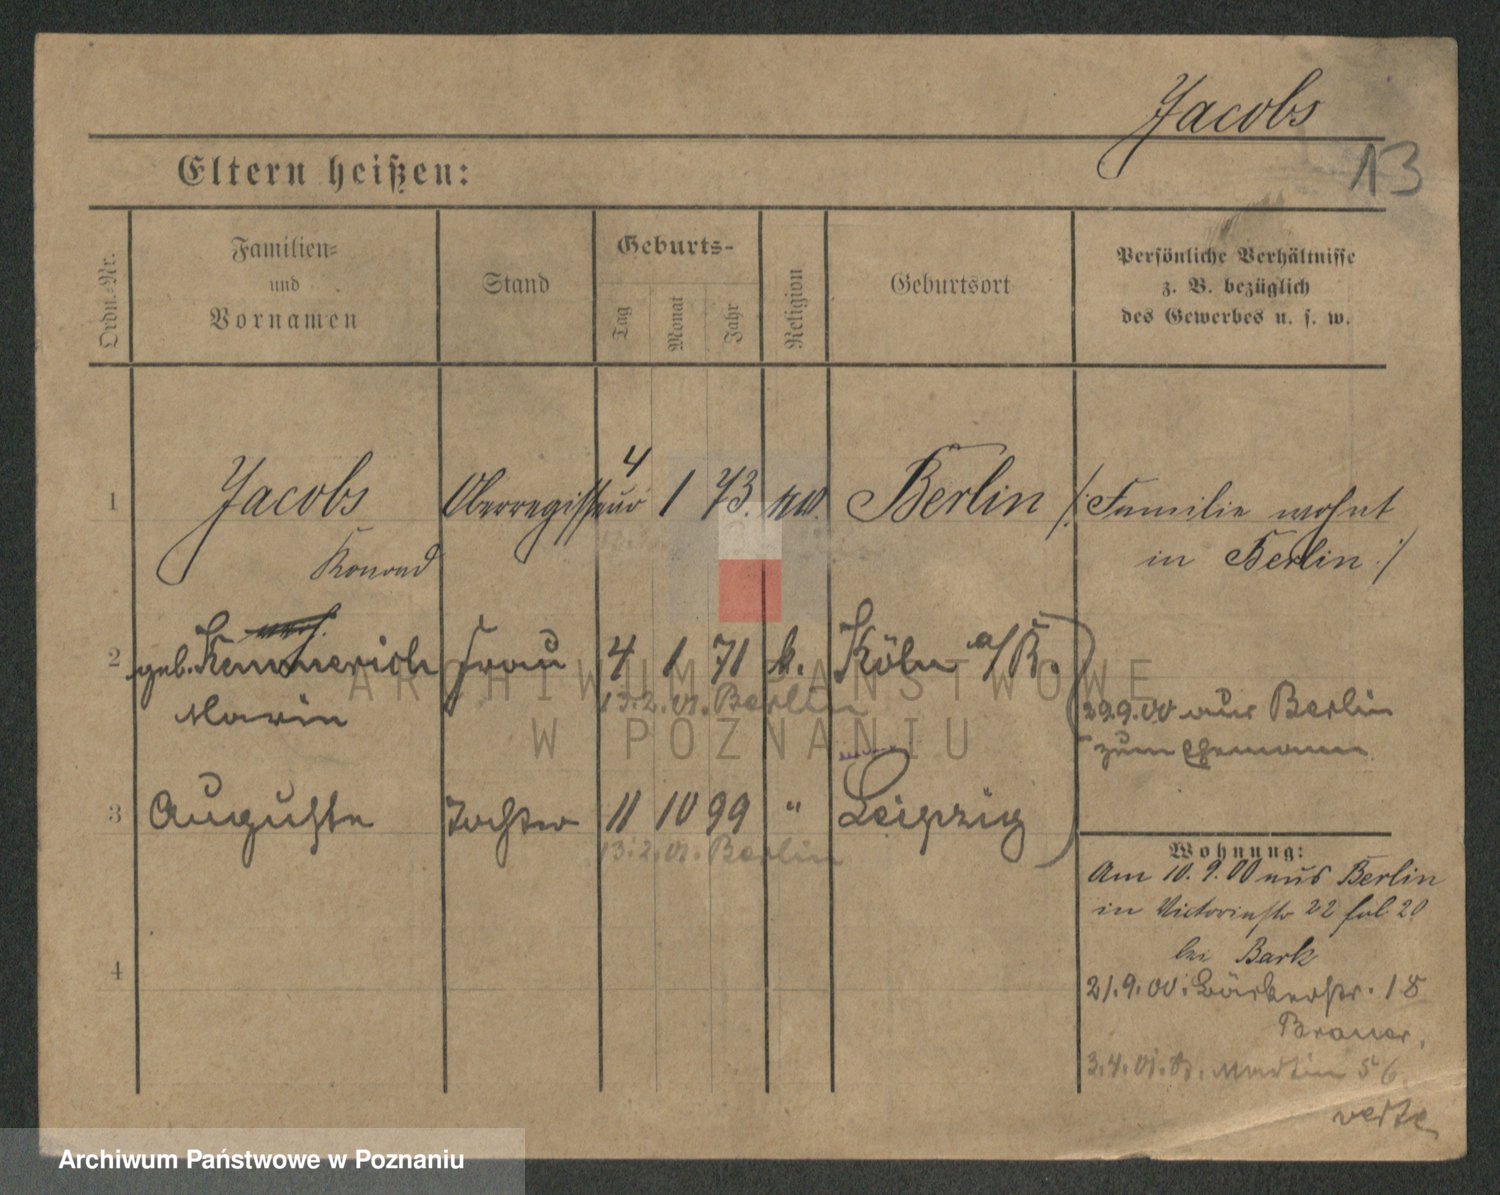 Jacobs
13
Eltern heißen:
Ordn.-Nr.
Familien-
und
Vornamen
Stand
Geburts-
Tag
Monat
Jahr
Religion
Geburtsort
Persönliche Verhältnisse
z. B. bezüglich
des Gewerbes u. s. w.
1 Jacobs Oberregisseur 4 1 73. Berlin /: Familie wohnt
Konrad in Berlin :/
2 geb. Kemmerich Frau 4 1 71 k. Köln a/R.
Marie 13.2.01. Berlin 29.9.00 aus Berlin
zum Ehemann
3 Auguste Tochter 11 10 99 " Leipzig
13.2.01. Berlin
Wohnung:
Am 10.9.00 aus Berlin
in Victoriastr 22 fol. 20
bei Bark
21.9.00. Bäckerstr. 18
Brauer,
3.4.01. St. Martin 56.
verte
4
ARCHIWUM PAŃSTWOWE
W POZNANIU
Archiwum Państwowe w Poznaniu